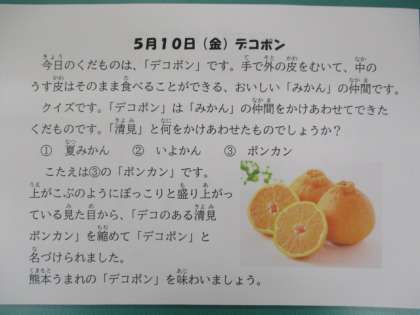 5月10日(金)デコポン
今日のくだものは、「デコポン」です。手で外の皮をむいて、中の
うす皮はそのまま食べることができる、おいしい「みかん」の仲間です。
クイズです。「デコポン」は「みかん」の仲間をかけあわせてできた
くだものです。「清見」と何をかけあわせたものでしょうか？
① 夏みかん ② いよかん ③ ポンカン
こたえは③の「ポンカン」です。
上がこぶのようにぽっこりと盛り上がっ
ている見た目から、「デコのある清見
ポンカン」を縮めて「デコポン」と
名づけられました。
熊本うまれの「デコポン」を味わいましょう。